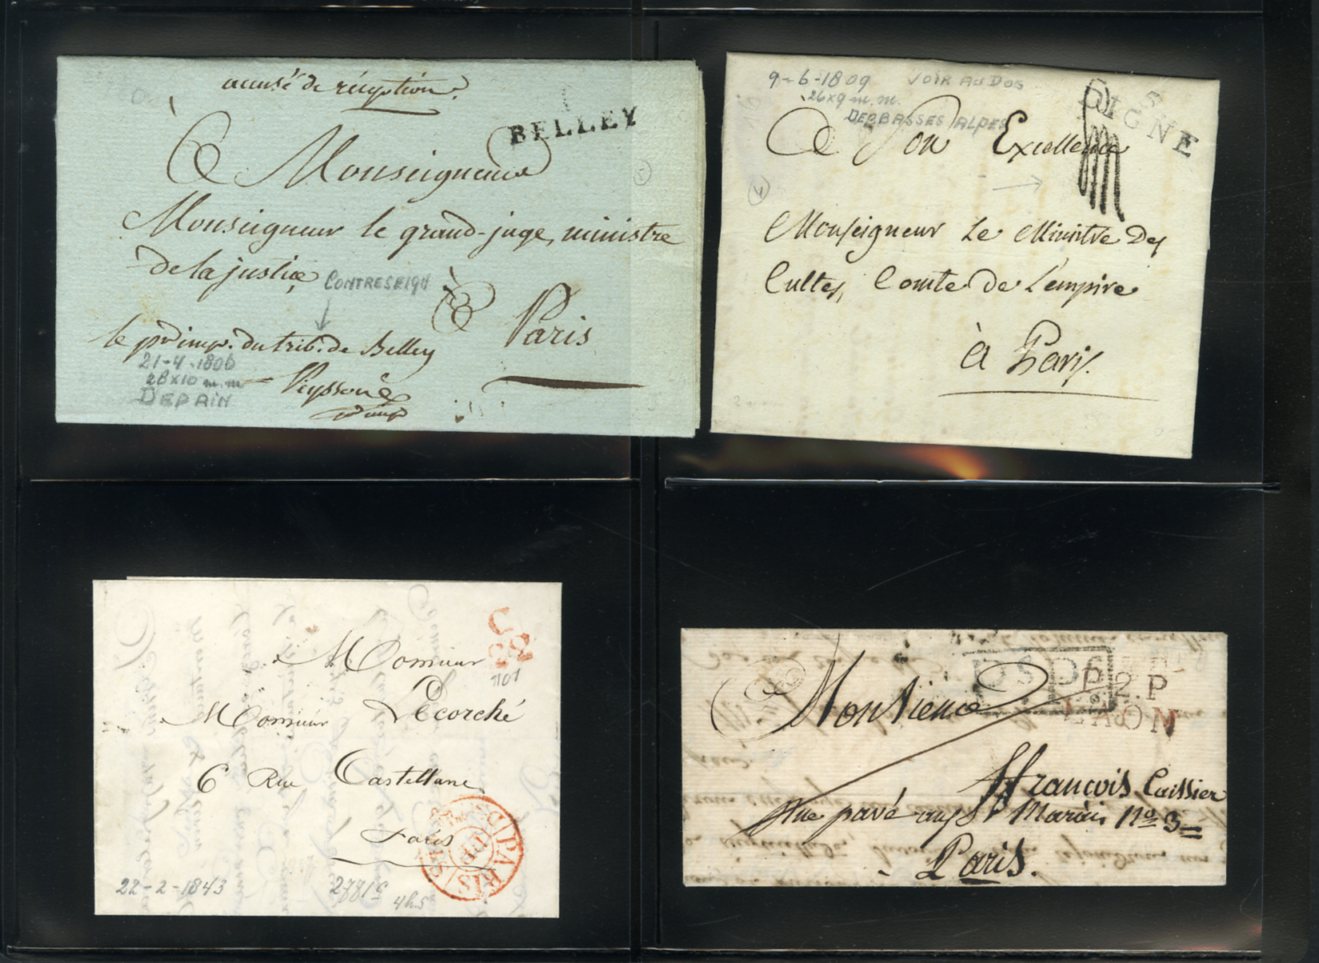 accusé de réception.
BELLEY
À Monseigneur
Monseigneur le grand-juge, ministre
de la justice
CONTRESEIGN
à Paris
le pr imp. du trib. de Belley
21-4-1806
28x10 m.m
DEP AIN
9-6-1809 VOIR AU DOS
26x9 m.m.
DEP BASSES ALPES
DIGNE
À Son Excellence
Monseigneur Le Ministre Des
Cultes, Comte de L'empire
à Paris.
Monsieur
Monsieur Lécorché
6 Rue Castellane
Paris
PARIS
22-2-1843
Monsieur
P.2.P
LAON
françois Caissier
Rue pavé au St Marais No 3
Paris.